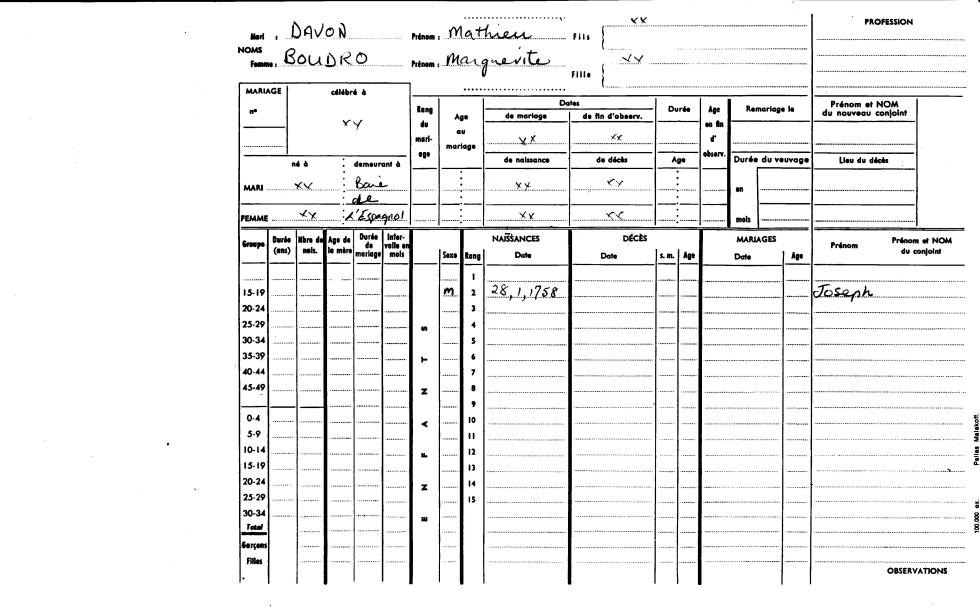 xx PROFESSION
Mari : DAVON Prénom : Mathieu Fils
NOMS
Femme : BOUDRO Prénom : Marguerite Fille xx
MARIAGE célébré à Rang du mariage Age au mariage Dates Durée Age en fin d'observ. Remariage le Prénom et NOM du nouveau conjoint
n° xy de mariage de fin d'observ.
xx xx
né à demeurant à de naissance de décès Age Durée du veuvage Lieu du décès
MARI xx Baie xx xy en
de
FEMME xx l'Espagnol xx xx mois
Groupe Durée (ans) Nbre de nais. Age de la mère Durée de mariage Intervalle en mois NAISSANCES DÉCÈS MARIAGES Prénom Prénom et NOM du conjoint
Sexe Rang Date Date s. m. Age Date Age
1
15-19 M 2 28,1,1758 Joseph
20-24 3
25-29 S 4
30-34 5
35-39 T 6
40-44 7
45-49 N 8
9
0-4 A 10
5-9 11
10-14 F 12
15-19 13
20-24 N 14
25-29 15
30-34 E
Total
Garçons
Filles
OBSERVATIONS
100.000 ex. Pelles Malakoff.